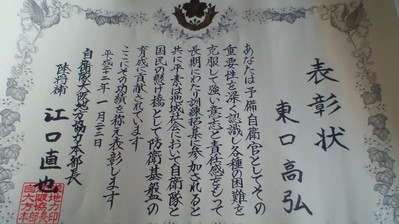 表彰状
東口高弘
あなたは予備自衛官としてその
重要性を深く認識し各種の困難を
克服して強い意志と責任感をもって
長期にわたり訓練招集に参加されると
共に平素は地域社会において自衛隊と
国民の懸け橋として防衛基盤の
育成に貢献されています
ここにその功績を称え表彰します
平成二十二年一月二十三日
自衛隊大阪地方協力本部長
陸将補 江口直也